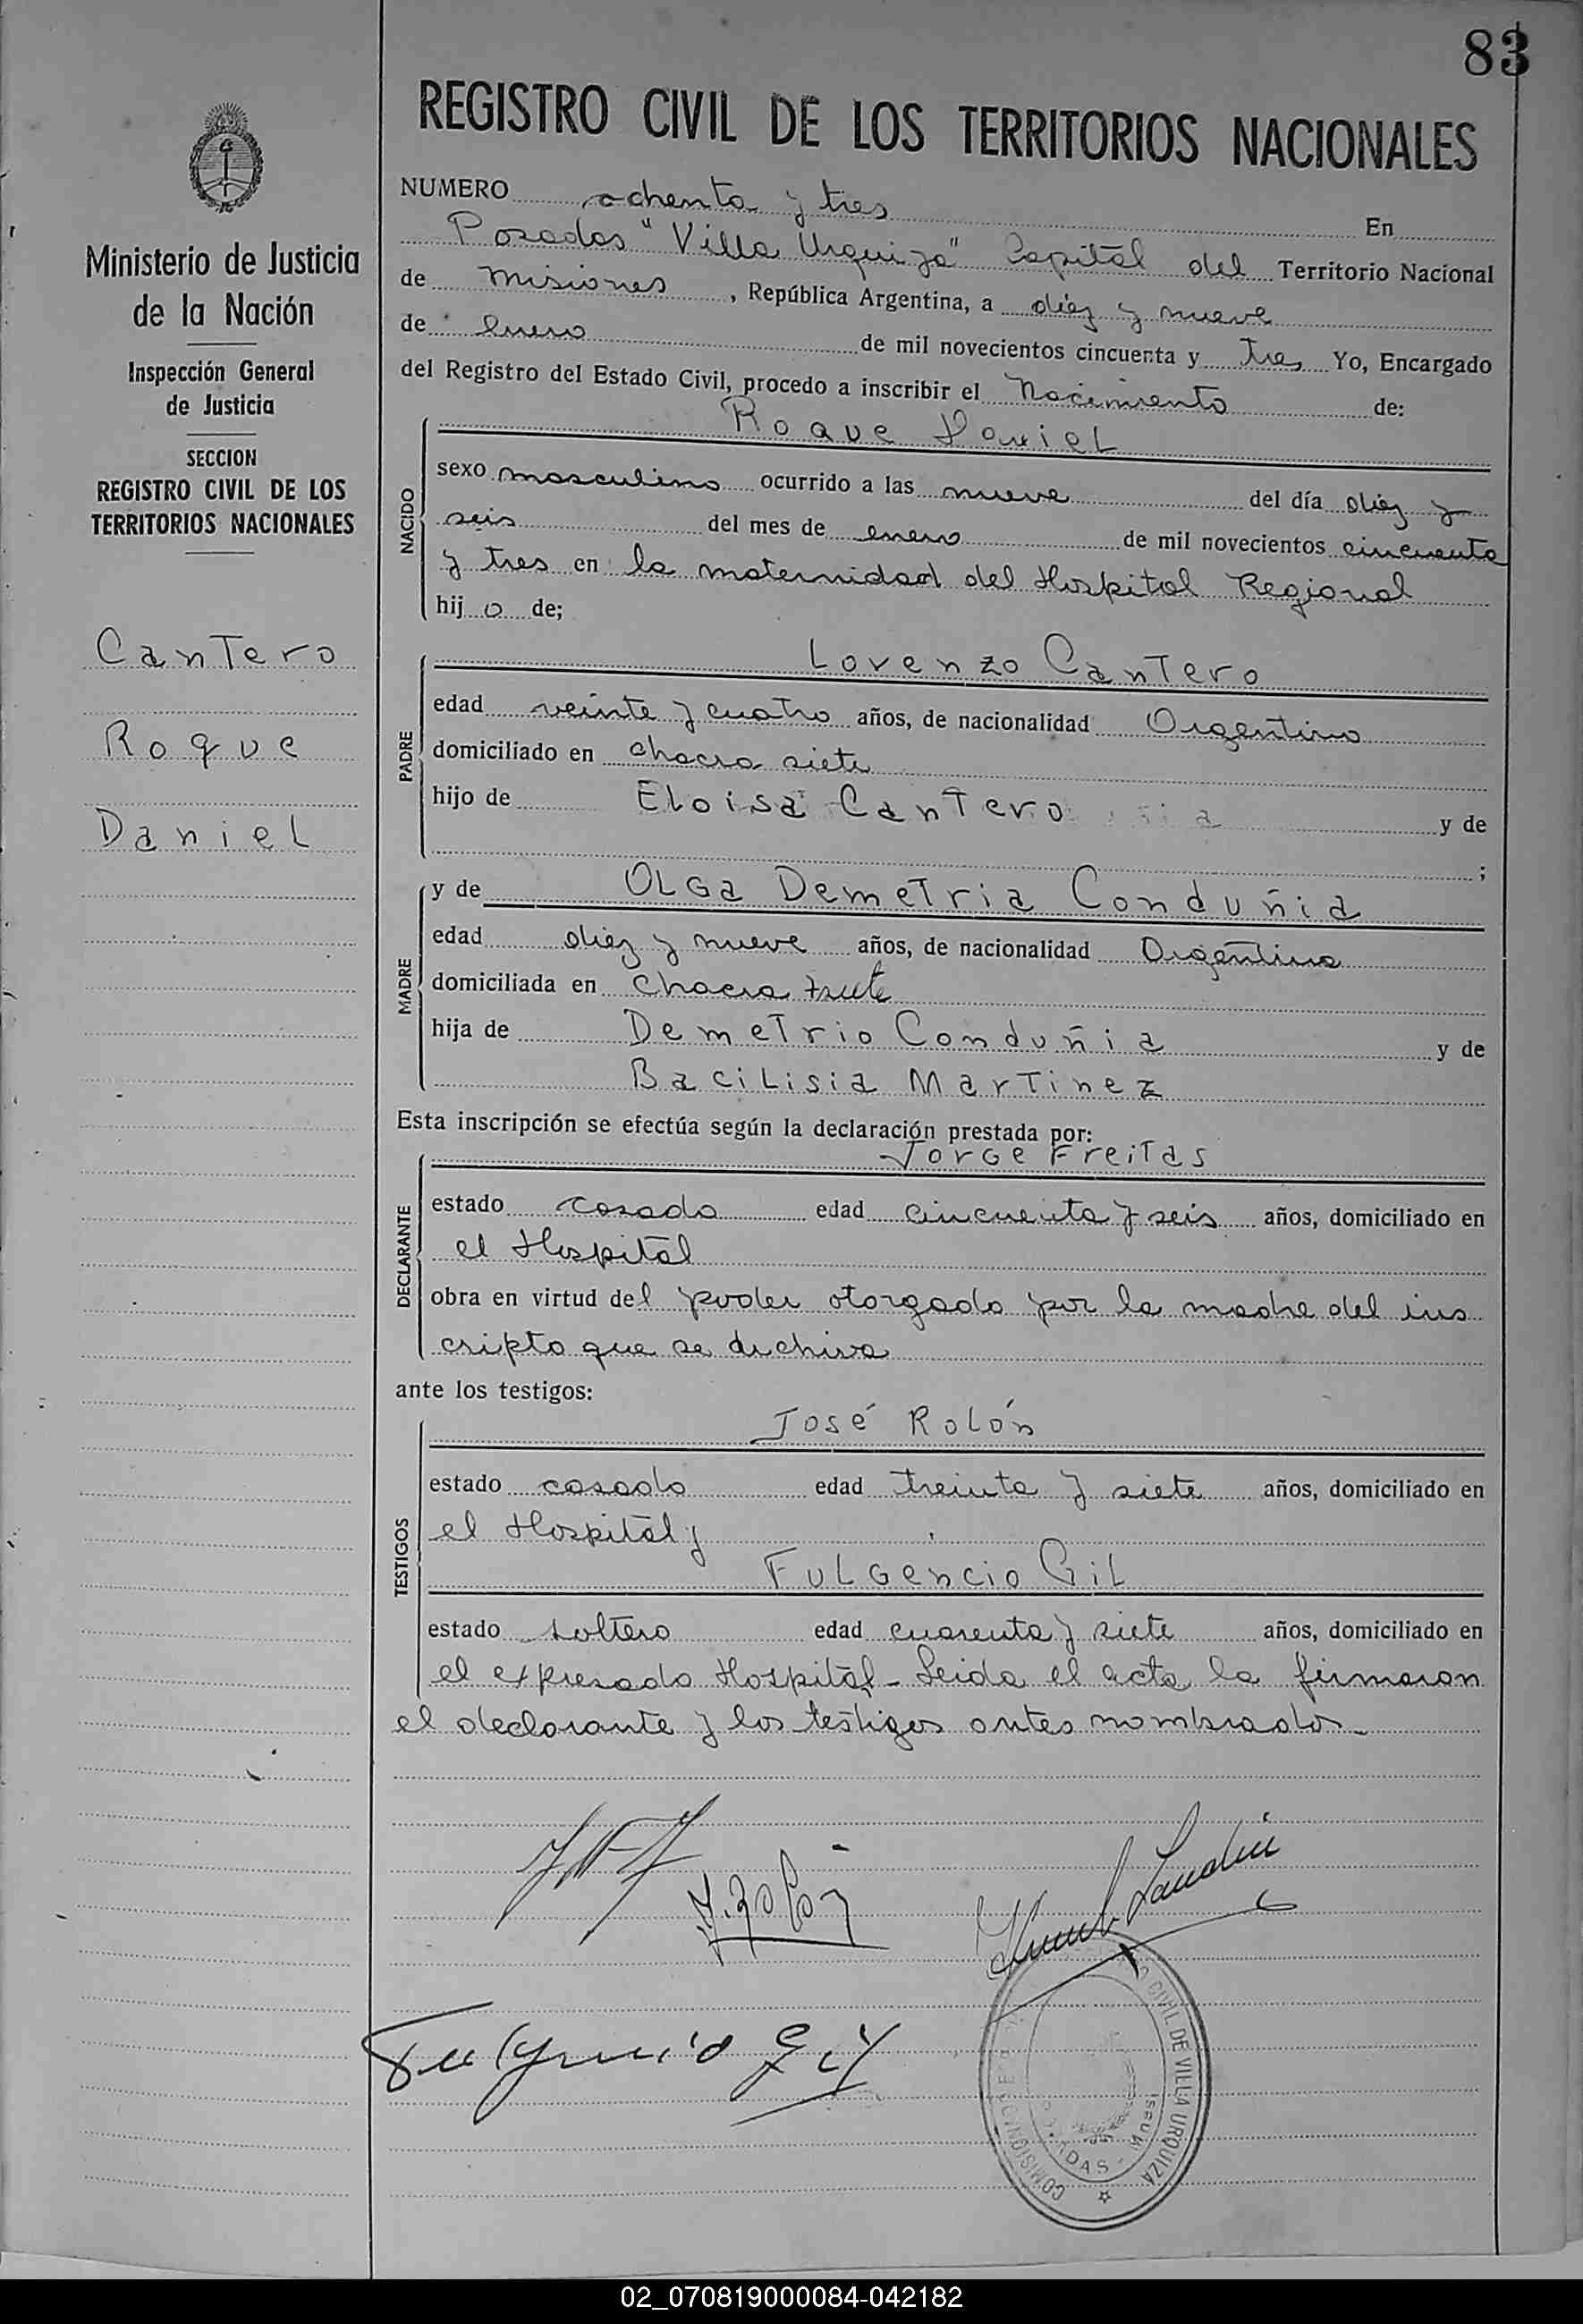 83
REGISTRO CIVIL DE LOS TERRITORIOS NACIONALES
Ministerio de Justicia
de la Nación
Inspección General
de Justicia
SECCION
REGISTRO CIVIL DE LOS
TERRITORIOS NACIONALES
Cantero
Roque
Daniel
NUMERO ochenta y tres En
Posadas "Villa Urquiza" Capital del Territorio Nacional
de Misiones, República Argentina, a diez y nueve
de enero de mil novecientos cincuenta y tres Yo, Encargado
del Registro del Estado Civil, procedo a inscribir el Nacimiento de:
Roque Daniel
NACIDO
sexo masculino ocurrido a las nueve del día diez y
seis del mes de enero de mil novecientos cincuenta
y tres en la maternidad del Hospital Regional
hijo de;
PADRE
Lorenzo Cantero
edad veinte y cuatro años, de nacionalidad Argentino
domiciliado en chacra siete
hijo de Eloisa Cantero y de
;
MADRE
y de Olga Demetria Conduñia
edad diez y nueve años, de nacionalidad Argentina
domiciliada en Chacra
hija de Demetrio Conduñia y de
Bacilisia Martinez
Esta inscripción se efectúa según la declaración prestada por:
DECLARANTE
Jorge Freitas
estado casado edad cincuenta y seis años, domiciliado en
el Hospital
obra en virtud del poder otorgado por la madre del ins
cripto que se archiva
ante los testigos:
TESTIGOS
José Rolón
estado casado edad treinta y siete años, domiciliado en
el Hospital y
Fulgencio Gil
estado soltero edad cuarenta y siete años, domiciliado en
el expresado Hospital - Leida el acta la firmaron
el declarante y los testigos antes nombrados.
J. Rolón
Fulgencio Gil
CIVIL DE VILLA URQUIZA
02_070819000084-042182